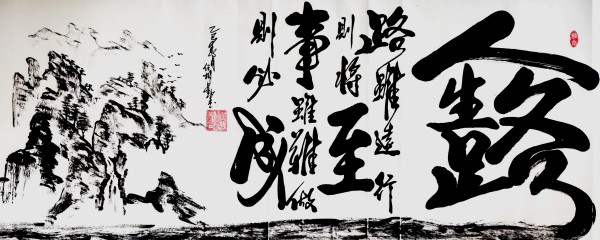 人生路
路雖遠行
則將至
事雖難做
則必成